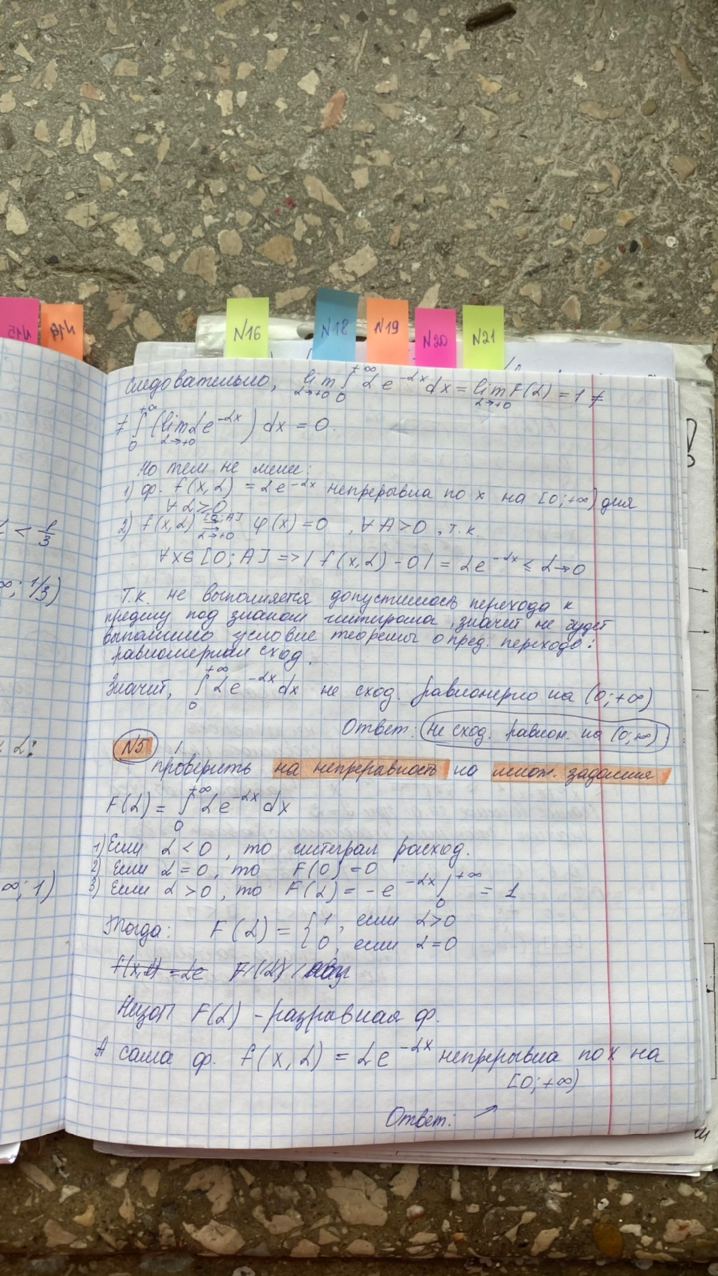 N16
N18
N19
N20
N21
Следовательно, lim_{α→+0} ∫_0^{+∞} αe^{-αx}dx = lim_{α→+0} F(α) = 1 ≠
≠ ∫_0^{+∞} (lim_{α→+0} αe^{-αx}) dx = 0.
Но тем не мене:
1) ф. f(x,α) = αe^{-αx} непрерывна по x на [0;+∞) для
∀ α≥0
2) f(x,α) ⇉^{[0;A]}_{α→+0} φ(x) = 0, ∀ A>0, т.к.
∀x∈[0;A] => |f(x,α) - 0| = αe^{-αx} ≤ α→0
Т.к. не выполняется допустимость перехода к
пределу под знаком интеграла, значит не будет
выполнено условие теоремы о пред. переходе:
равномерная сход.
Значит, ∫_0^{+∞} αe^{-αx}dx не сход. равномерно на (0;+∞)
Ответ: не сход. равном. на (0,∞)
N5
проверить на непреравность на множ. задания
F(α) = ∫_0^{+∞} αe^{-αx}dx
1) Если α<0, то интеграл расход.
2) Если α=0, то F(0)=0
3) Если α>0, то F(α) = -e^{-αx}|_0^{+∞} = 1
Тогда: F(α) = { 1, если α>0
0, если α=0
f(x,α) = αe F(α)
F(α) - разравная ф.
А сама ф. f(x,α) = αe^{-αx} непрерывна по x на
[0;+∞)
Ответ: ↗
< 1/3
∞; 1/3)
α:
∞; 1)